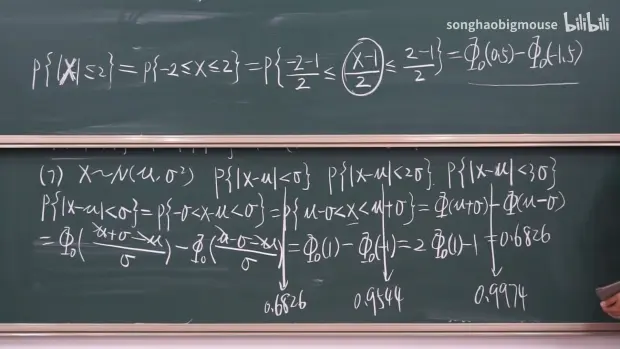 songhaobigmouse bilibili
P{|X|≤2}=P{-2≤X≤2}=P{(-2-1)/2≤(X-1)/2≤(2-1)/2}=Φ₀(0.5)-Φ₀(-1.5)
(7) X~N(μ,σ²) P{|X-μ|<σ} P{|X-μ|<2σ}. P{|X-μ|<3σ}
P{|X-μ|<σ}=P{-σ<X-μ<σ}=P{μ-σ<X<μ+σ}=Φ(μ+σ)-Φ(μ-σ)
=Φ₀((μ+σ-μ)/σ)-Φ₀((μ-σ-μ)/σ)=Φ₀(1)-Φ₀(-1)=2Φ₀(1)-1=0.6826
0.6826 0.9544 0.9974